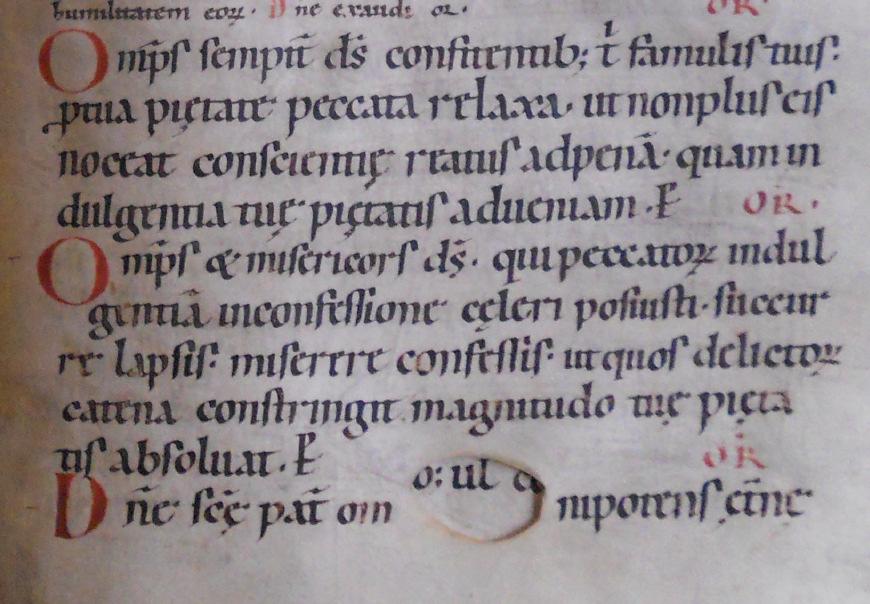 humilitatem eoꝝ. Dne exaudi or. OR.
Omp̄s sempit̄ d̄s confitentib; t̄ famulis tuis.
ꝓ tua piętate peccata relaxa. ut non plus eis
noceat conscientię reatus ad penā. quam in
dulgentia tuę piętatis ad ueniam. P OR.
Omp̄s & misericors d̄s. qui peccatoꝝ indul
gentiā in confessione cęleri posuisti. succur
re lapsis. miserere confessis. ut quos delictoꝝ
catena constringit magnitudo tuę pięta
tis absoluat. P OR
Dn̄e sc̄ę pat̄ om nipotens ęt̄ne